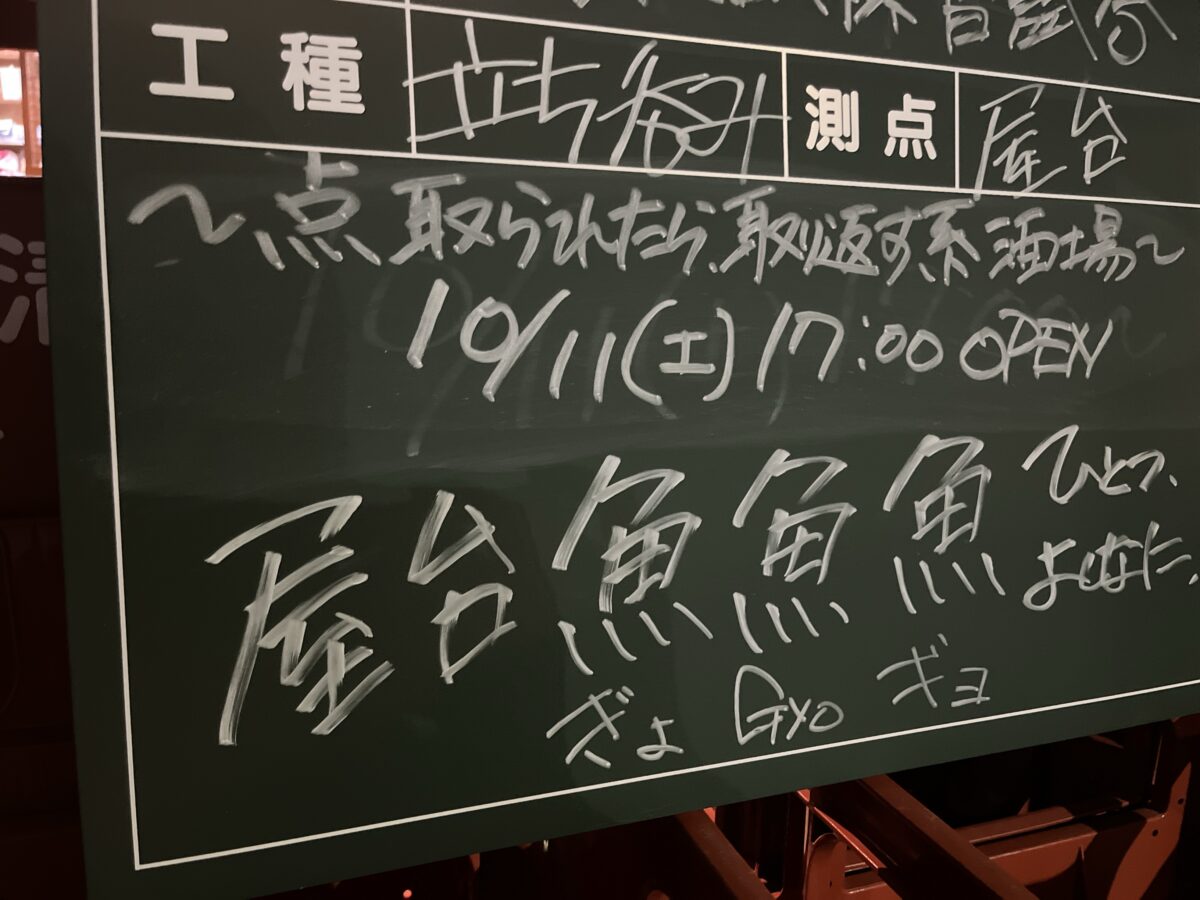 工種 立ち飲み 測点 屋台
～点取られたら、取り返す系酒場～
10/11(土)17:00 OPEN
屋台魚魚魚 ひとつ、
よしなに、
ぎょ Gyo ギョ